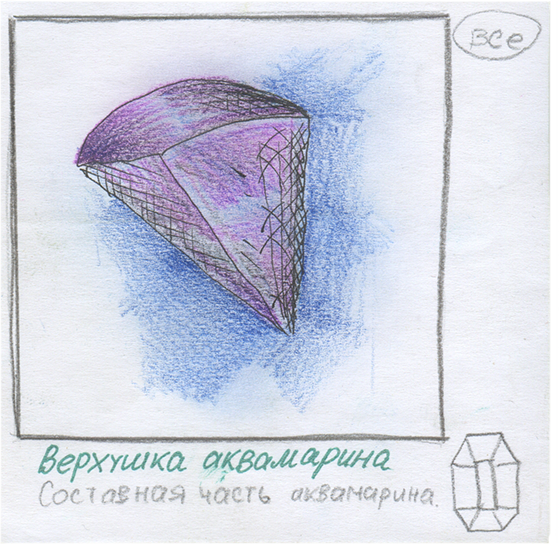 все
Верхушка аквамарина
Составная часть аквамарина.